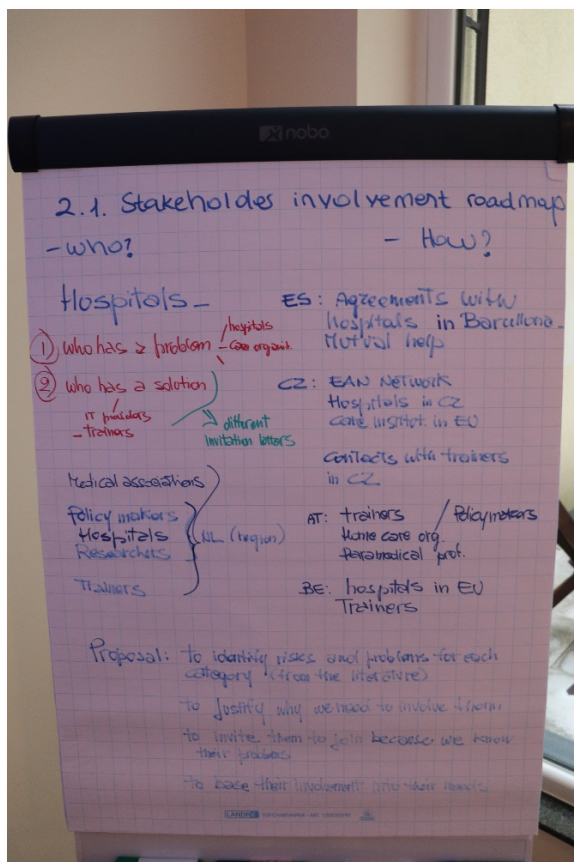 nobo
2.1. Stakeholdes involvement roadmap
- who?
- How?
Hospitals -
① who has a problem
- hospitals
- care organist.
② who has a solution
IT providers
- trainers
different
invitation letters
Medical associations
Policy makers
Hospitals
Researchers
Trainers
NL (region)
ES: Agreements with
Hospitals in Barcellona-
Mutual help
CZ: EAN NETWORK
Hospitals in CZ
Care institut. in EU
contacts with trainers
in CZ
AT: trainers
Home care org.
Paramedical prof.
Policy makers
BE: hospitals in EU
Trainers
Proposal: to identify risks and problems for each
category (from the literature)
to justify why we need to involve them
to invite them to join because we know
their problems
to base their involvement into their needs
LANDRÉ